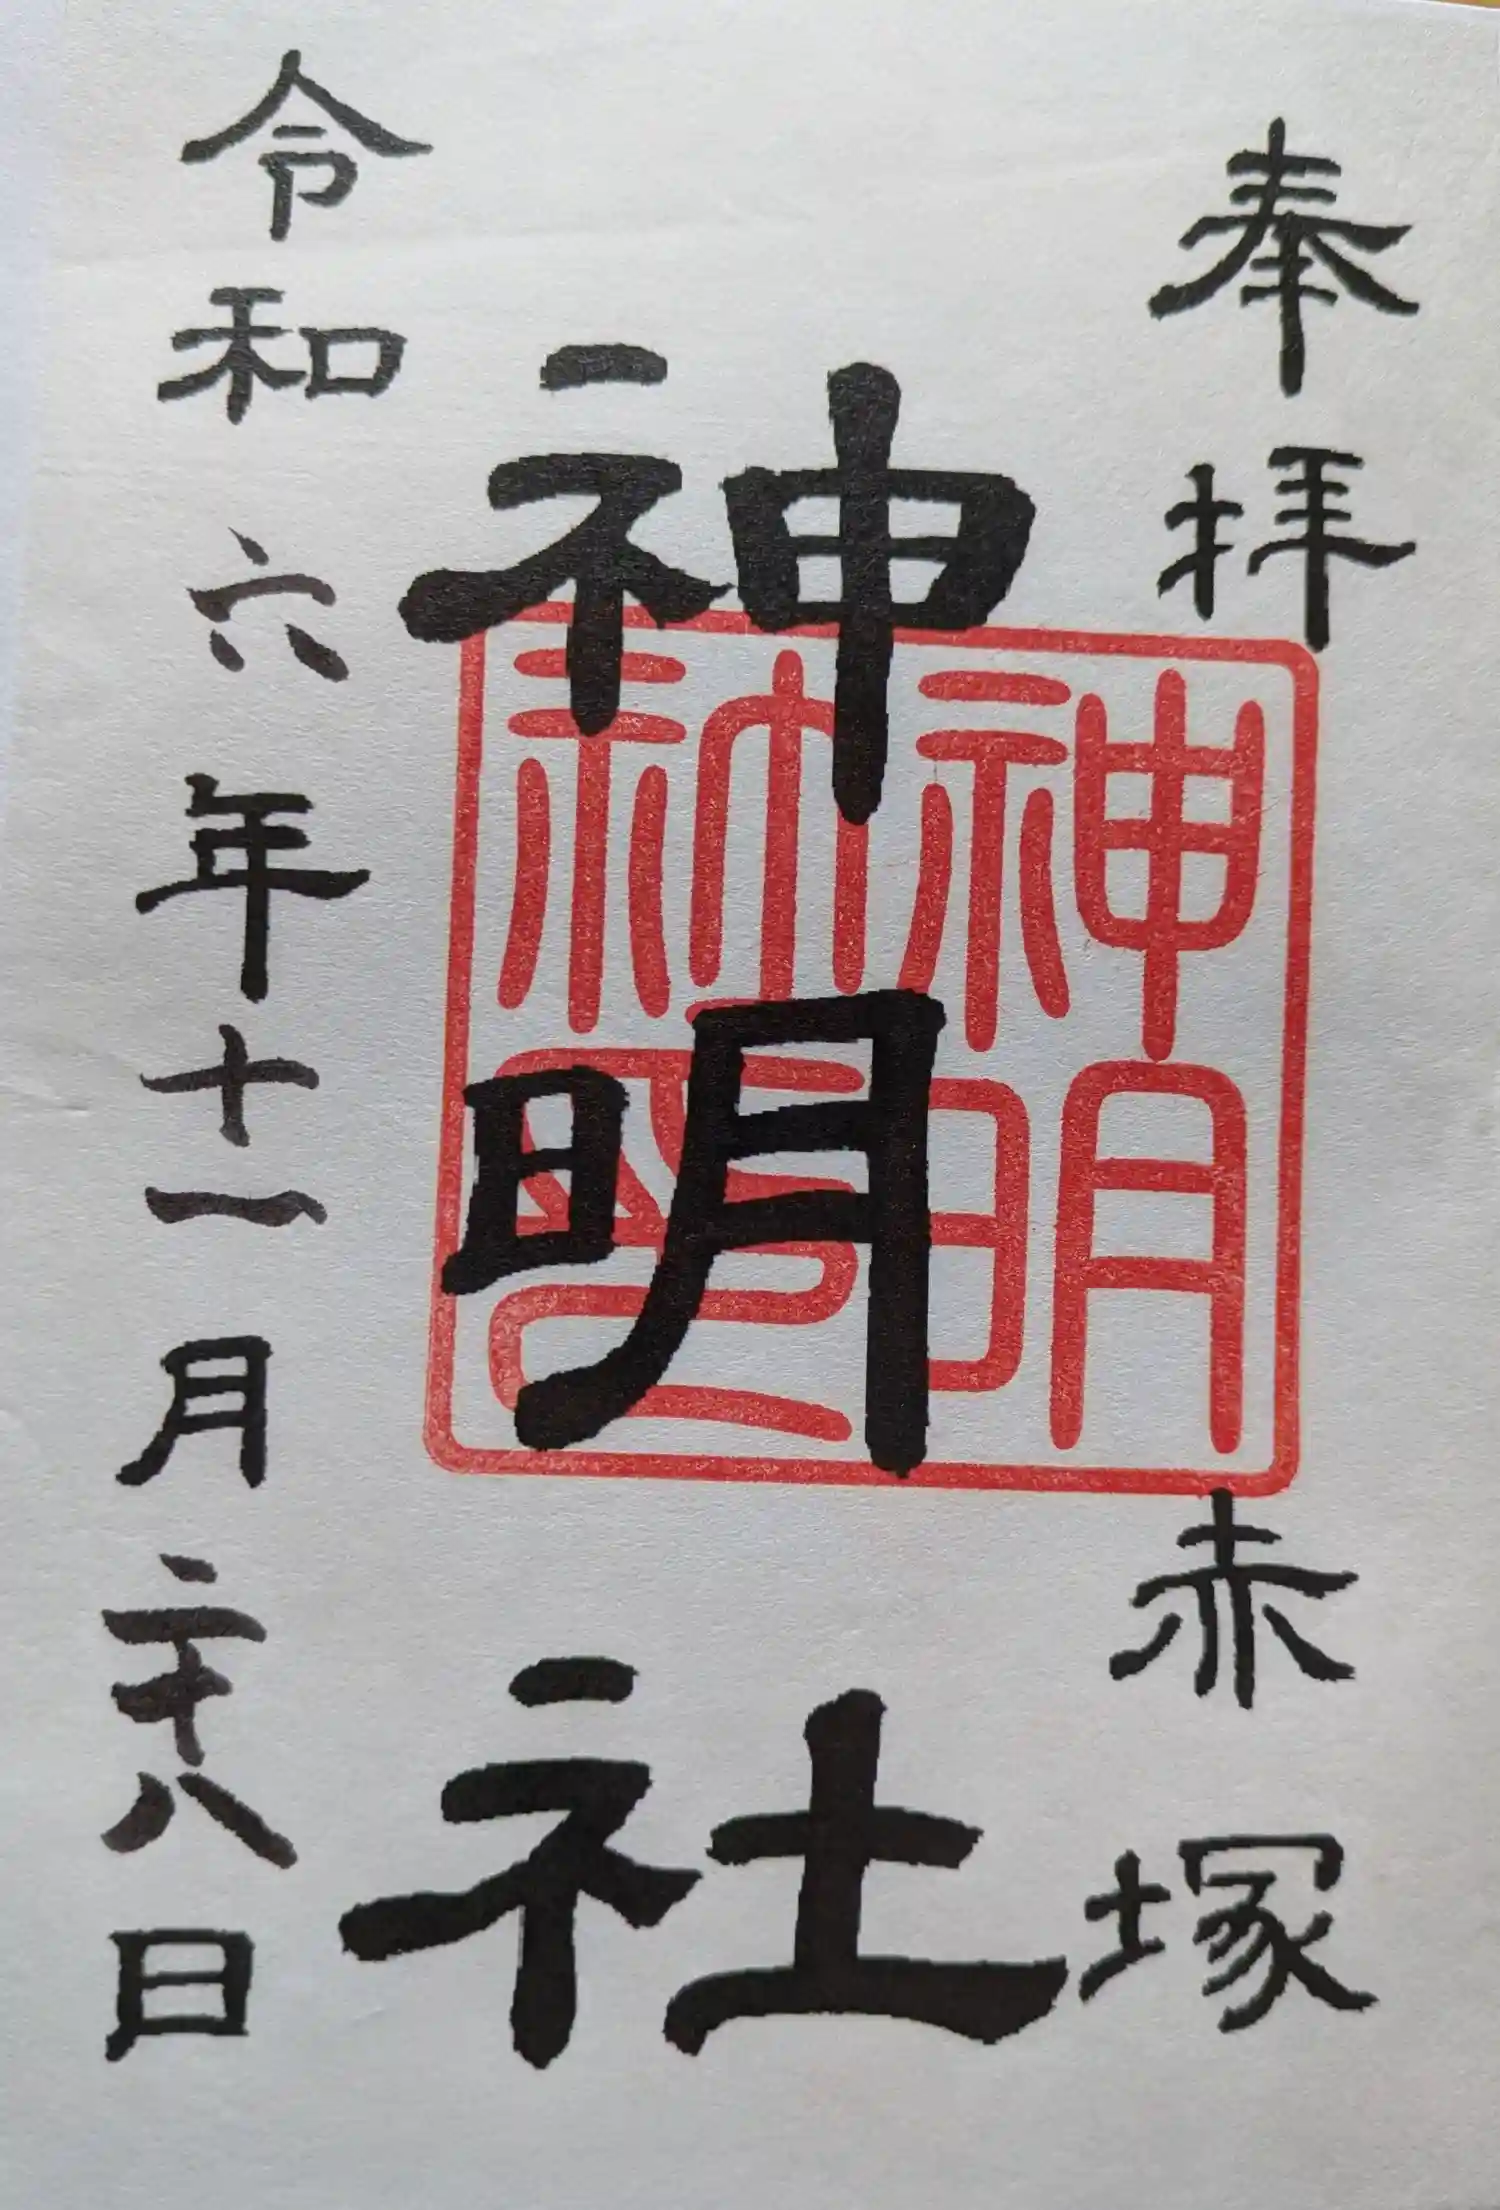 奉拝
赤塚
神明社
神明社印
令和六年十一月二十八日